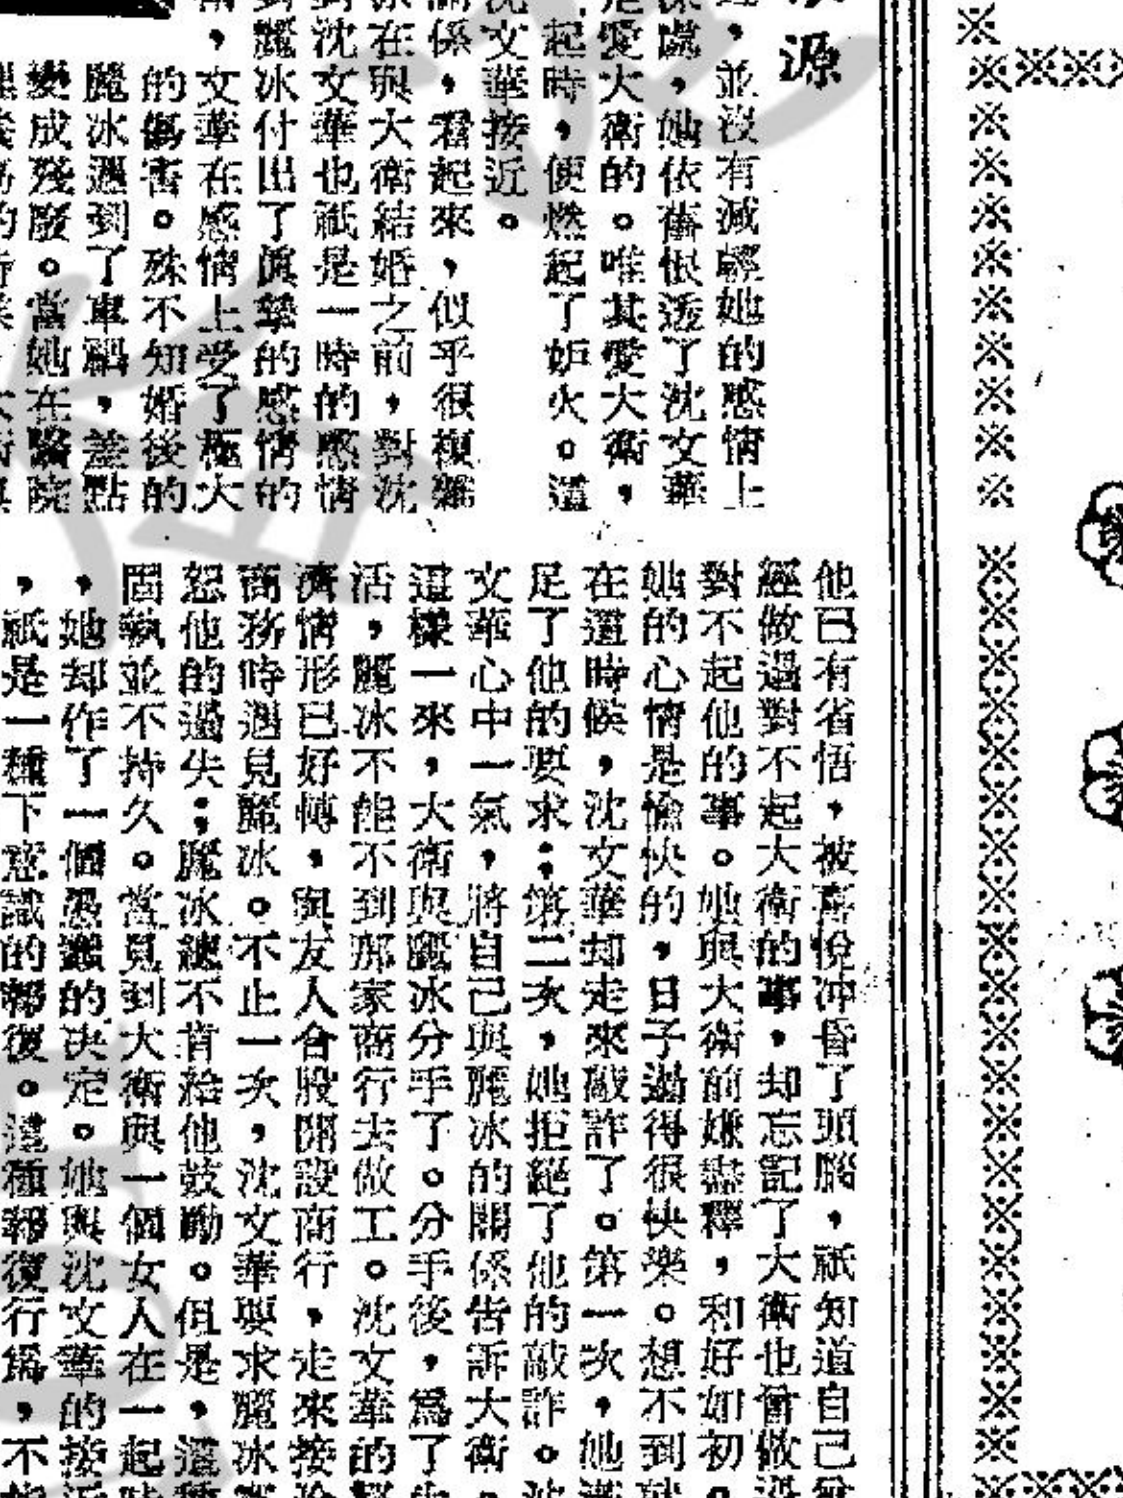 源
，並沒有減輕她的感情上
處，她依舊恨透了沈文華
愛大衛的。唯其愛大衛，
起時，便燃起了妒火。這
沈文華接近。
係，看起來，似乎很複雜
在與大衛結婚之前，對沈
沈文華也祇是一時的感情
麗冰付出了眞摯的感情的
，文華在感情上受了極大
的傷害。殊不知婚後的
麗冰遇到了車禍，差點
變成殘廢。當她在醫院
他已有省悟，被喜悅冲昏了頭腦，祇知道自己曾
經做過對不起大衛的事，却忘記了大衛也曾做過
對不起他的事。她與大衛前嫌盡釋，和好如初。
她的心情是愉快的，日子過得很快樂。想不到就
在這時候，沈文華却走來敲詐了。第一次，她滿
足了他的要求；第二次，她拒絕了他的敲詐。沈
文華心中一氣，將自己與麗冰的關係告訴大衛。
這樣一來，大衛與麗冰分手了。分手後，爲了
活，麗冰不能不到那家商行去做工。沈文華的
濟情形已好轉，與友人合股開設商行，走來接洽
商務時遇見麗冰。不止一次，沈文華要求麗冰
恕他的過失；麗冰總不肯給他鼓勵。但是，這種
固執並不持久。當見到大衛與一個女人在一起時
，她却作了一個愚蠢的決定。她與沈文華的接近
，祇是一種下意識的報復。這種報復行爲，不